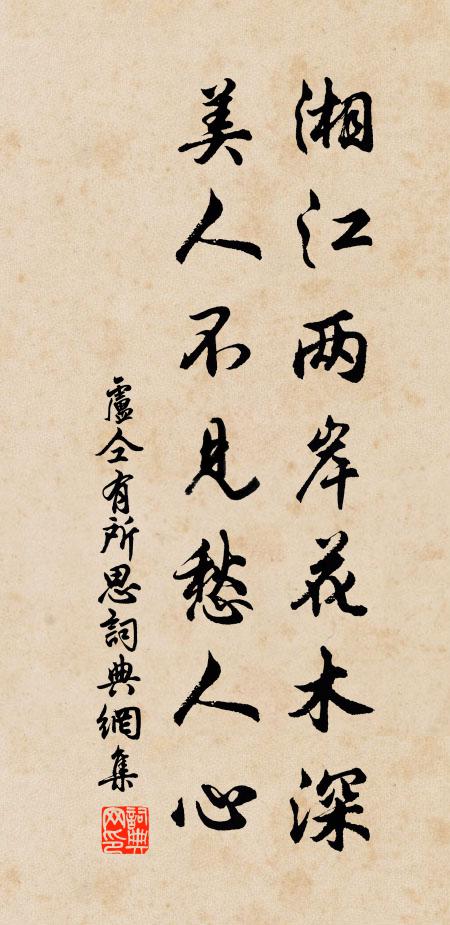 湘江两岸花木深
美人不见愁人心
盧仝有所思詞典網集
詞典網印